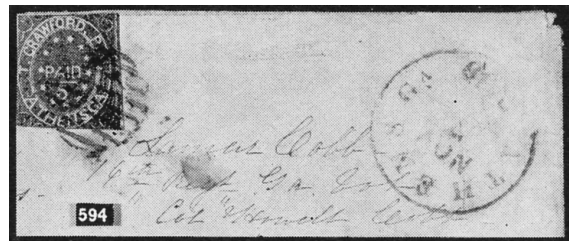 T. CRAWFORD, P.
PAID
5
ATHENS, GA.
ATHENS GA
NOV
Lamar Cobb
16th Regt Ga Vol
Col Howell Cobb
594